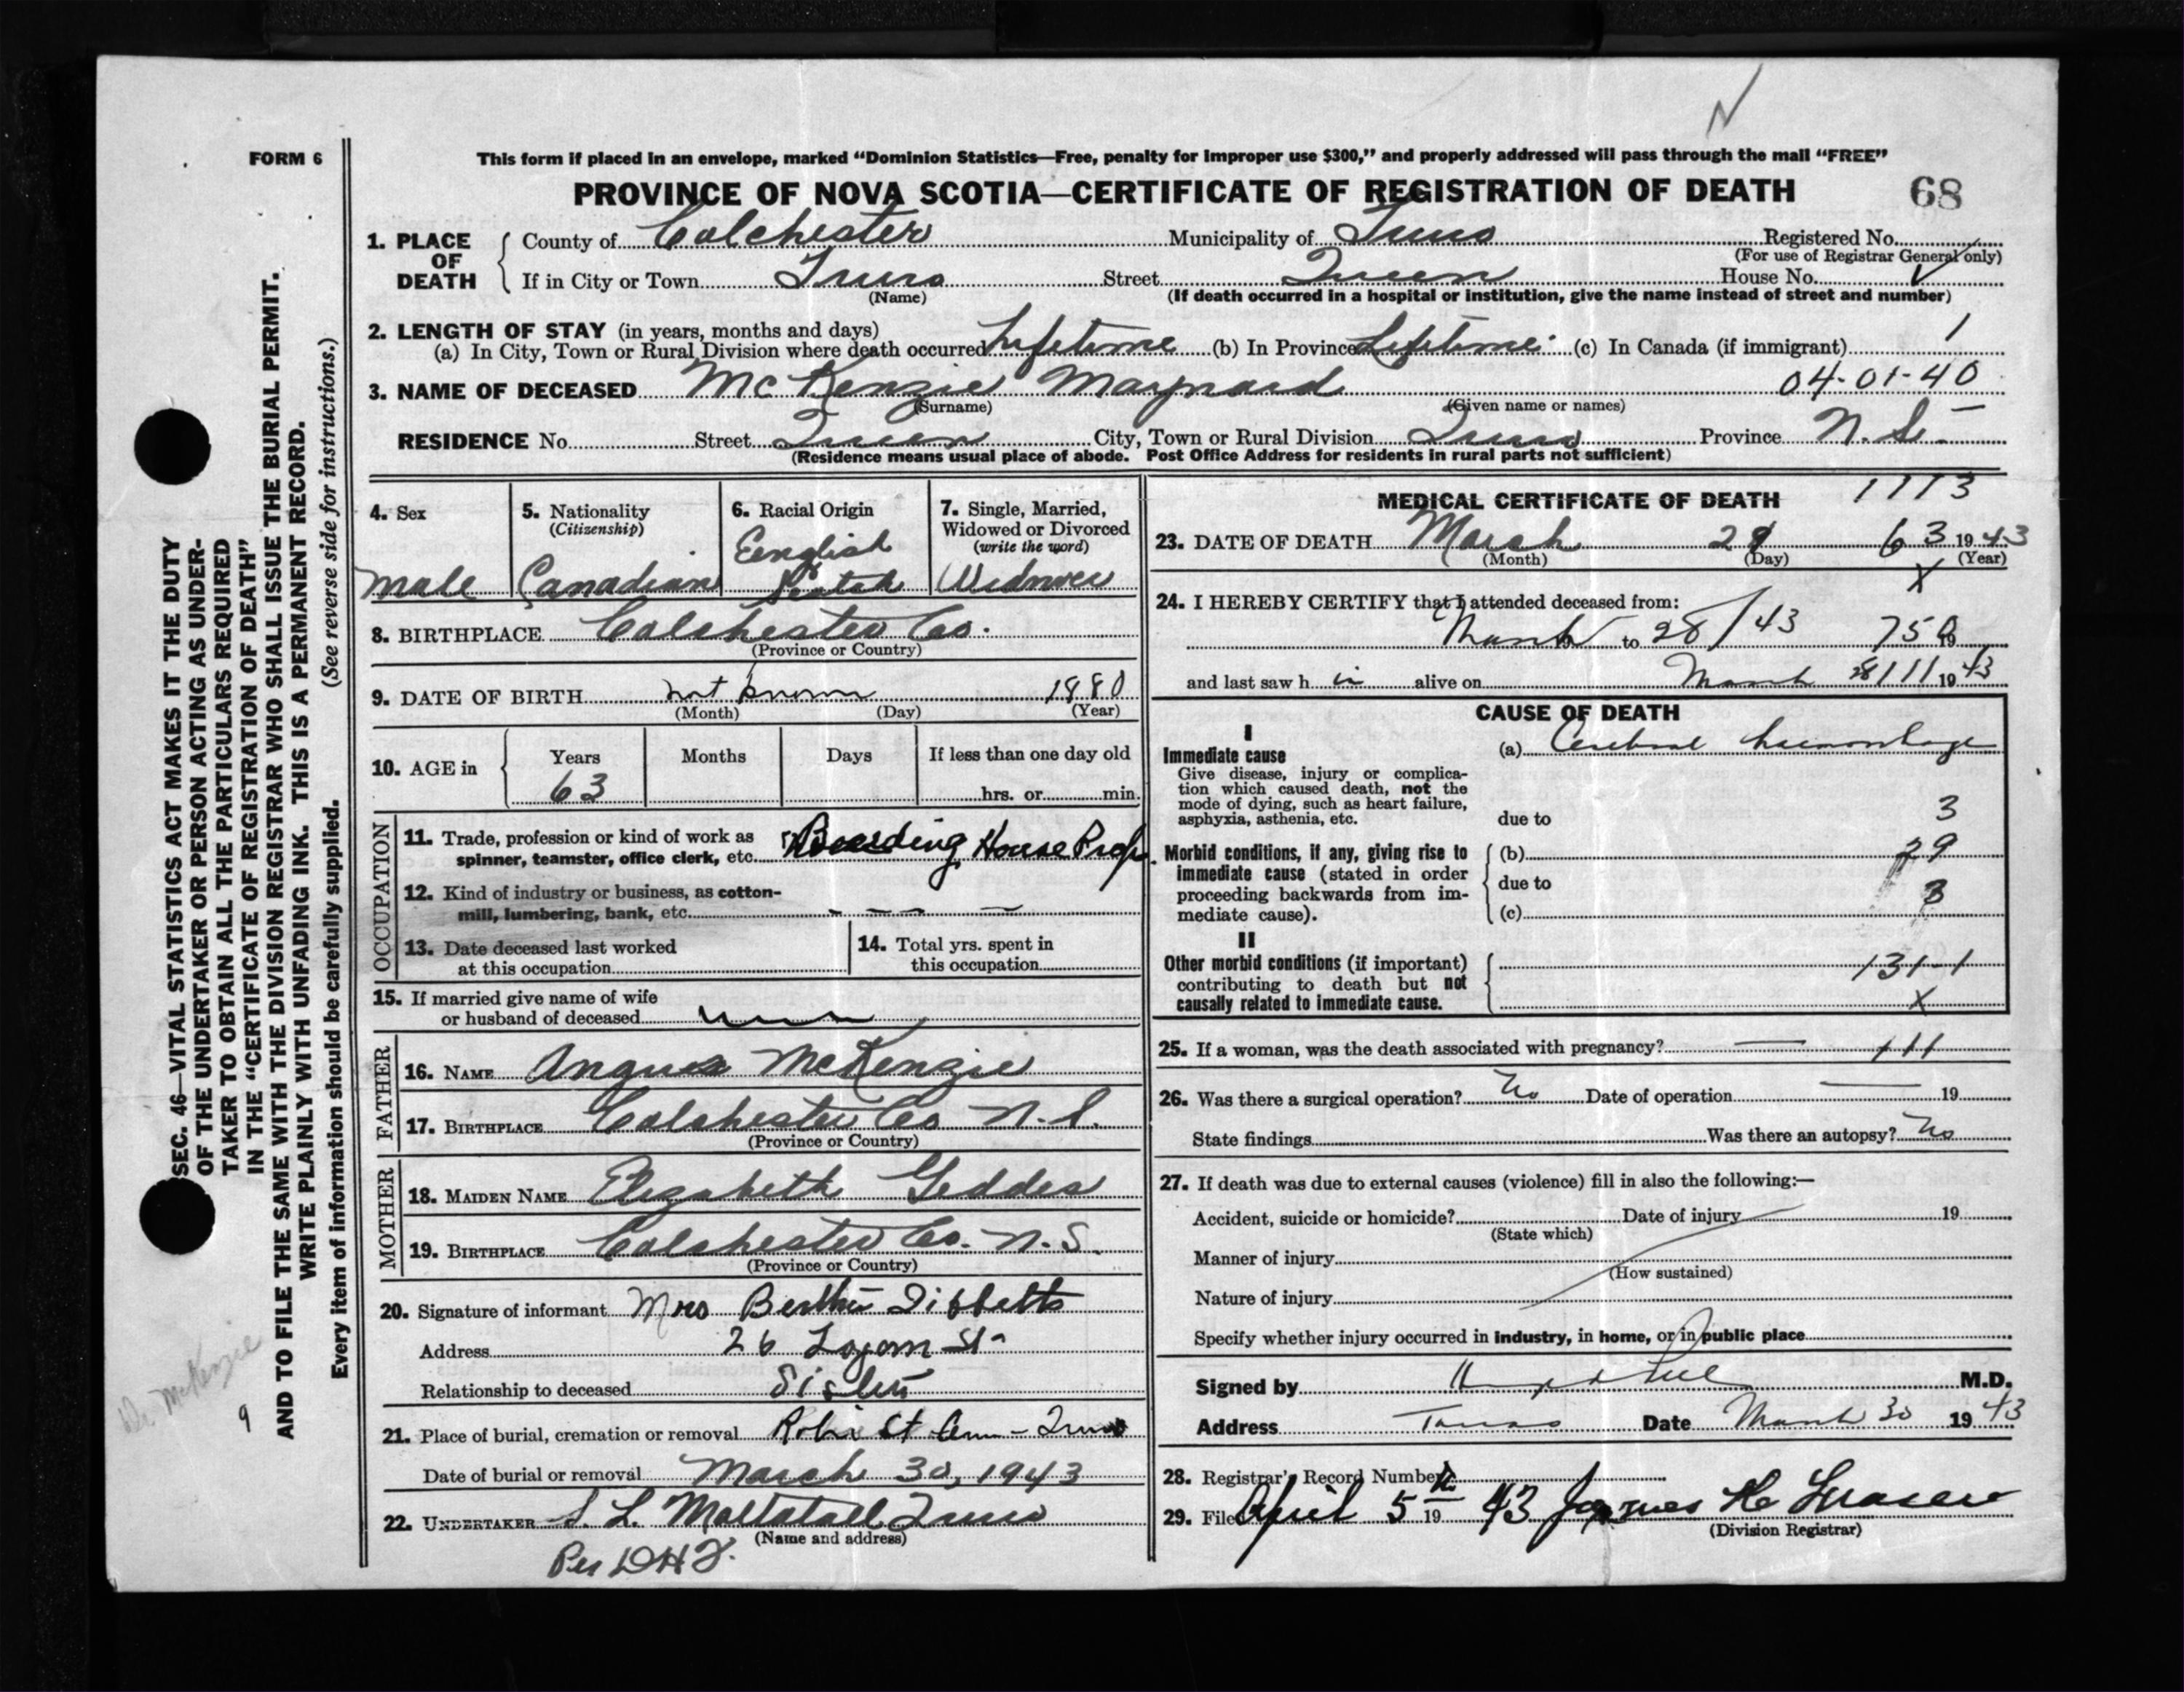 FORM 6
This form if placed in an envelope, marked “Dominion Statistics—Free, penalty for improper use $300,” and properly addressed will pass through the mail “FREE”
PROVINCE OF NOVA SCOTIA—CERTIFICATE OF REGISTRATION OF DEATH 68
1. PLACE OF DEATH
County of Colchester Municipality of Truro Registered No.
(For use of Registrar General only)
If in City or Town Truro Street Queen House No.
(Name) (If death occurred in a hospital or institution, give the name instead of street and number)
2. LENGTH OF STAY (in years, months and days)
(a) In City, Town or Rural Division where death occurred Lifetime (b) In Province Lifetime (c) In Canada (if immigrant) 1
3. NAME OF DECEASED McKenzie Maynard 04-01-40
(Surname) (Given name or names)
RESIDENCE No. Street Queen City, Town or Rural Division Truro Province N.S.
(Residence means usual place of abode. Post Office Address for residents in rural parts not sufficient)
4. Sex
Male
5. Nationality
(Citizenship)
Canadian
6. Racial Origin
English
Scotch
7. Single, Married,
Widowed or Divorced
(write the word)
Widower
8. BIRTHPLACE Colchester Co.
(Province or Country)
9. DATE OF BIRTH not known 1880
(Month) (Day) (Year)
10. AGE in
Years Months Days If less than one day old
63 hrs. or min.
OCCUPATION
11. Trade, profession or kind of work as
spinner, teamster, office clerk, etc. Boarding House Prop.
12. Kind of industry or business, as cotton-
mill, lumbering, bank, etc. — — —
13. Date deceased last worked
at this occupation
14. Total yrs. spent in
this occupation
15. If married give name of wife
or husband of deceased
FATHER
16. NAME Angus McKenzie
17. BIRTHPLACE Colchester Co N.S.
(Province or Country)
MOTHER
18. MAIDEN NAME Elizabeth Geddes
19. BIRTHPLACE Colchester Co. N.S.
(Province or Country)
20. Signature of informant Mrs Bertha Tibbetts
Address 26 Logan St
Relationship to deceased Sister
21. Place of burial, cremation or removal Robie St Cem - Truro
Date of burial or removal March 30, 1943
22. UNDERTAKER S. L. Mattatall Truro
(Name and address)
Per DHF.
1113
MEDICAL CERTIFICATE OF DEATH
23. DATE OF DEATH March 29 63 1943
(Month) (Day) (Year)
X
24. I HEREBY CERTIFY that I attended deceased from:
March to 28/43 750 19
and last saw h im alive on March 28/11 1943
CAUSE OF DEATH
I
Immediate cause
Give disease, injury or complica-
tion which caused death, not the
mode of dying, such as heart failure,
asphyxia, asthenia, etc.
(a) Cerebral haemorhage
due to 3
Morbid conditions, if any, giving rise to
immediate cause (stated in order
proceeding backwards from im-
mediate cause).
(b) 29
due to 3
(c)
II
Other morbid conditions (if important)
contributing to death but not
causally related to immediate cause.
131-1
X
25. If a woman, was the death associated with pregnancy? — 111
26. Was there a surgical operation? No Date of operation — 19
State findings Was there an autopsy? No
27. If death was due to external causes (violence) fill in also the following:—
Accident, suicide or homicide? Date of injury 19
(State which)
Manner of injury
(How sustained)
Nature of injury
Specify whether injury occurred in industry, in home, or in public place
Signed by M.D.
Address Truro Date March 30 1943
28. Registrar's Record Number
29. Filed April 5th 1943 James H Fraser
(Division Registrar)
SEC. 46—VITAL STATISTICS ACT MAKES IT THE DUTY
OF THE UNDERTAKER OR PERSON ACTING AS UNDER-
TAKER TO OBTAIN ALL THE PARTICULARS REQUIRED
IN THE “CERTIFICATE OF REGISTRATION OF DEATH”
AND TO FILE THE SAME WITH THE DIVISION REGISTRAR WHO SHALL ISSUE THE BURIAL PERMIT.
WRITE PLAINLY WITH UNFADING INK. THIS IS A PERMANENT RECORD.
Every item of information should be carefully supplied. (See reverse side for instructions.)
McKenzie
9